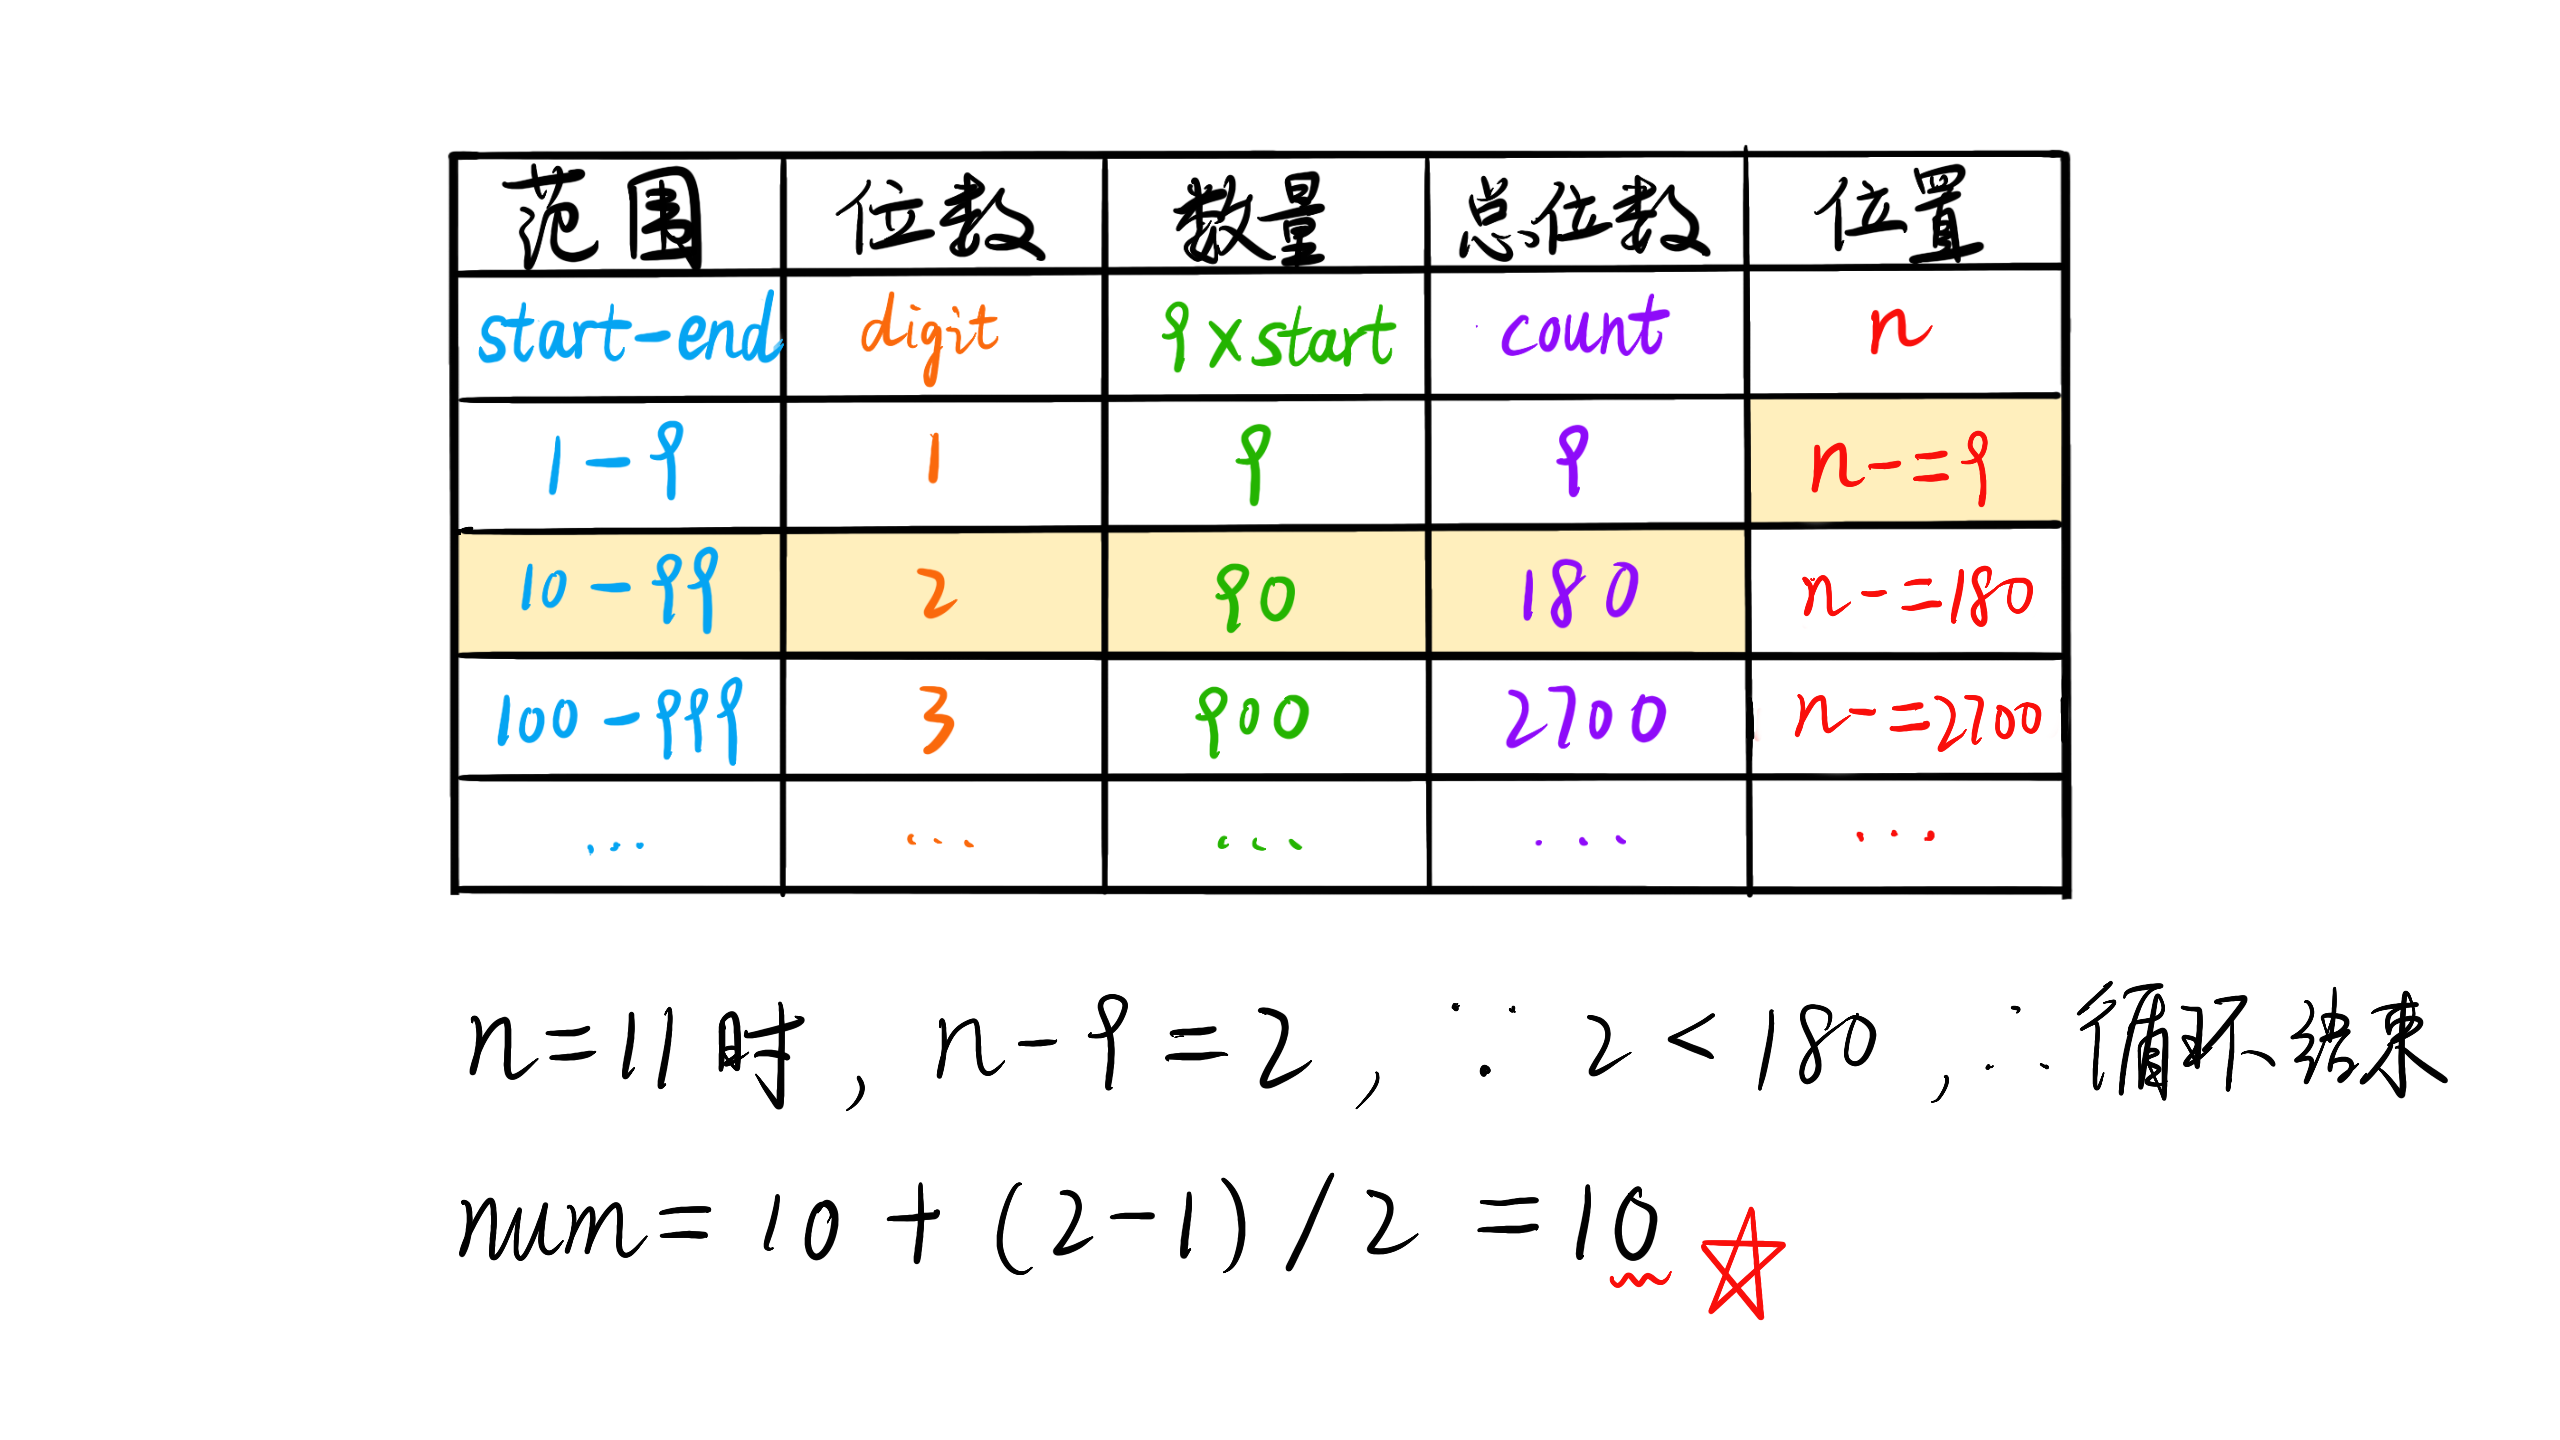 范围 位数 数量 总位数 位置
start-end digit 9×start count n
1-9 1 9 9 n-=9
10-99 2 90 180 n-=180
100-999 3 900 2700 n-=2700
... ... ... ... ...
n=11时, n-9=2, ∵ 2<180, ∴循环结束
num=10+(2-1)/2=10